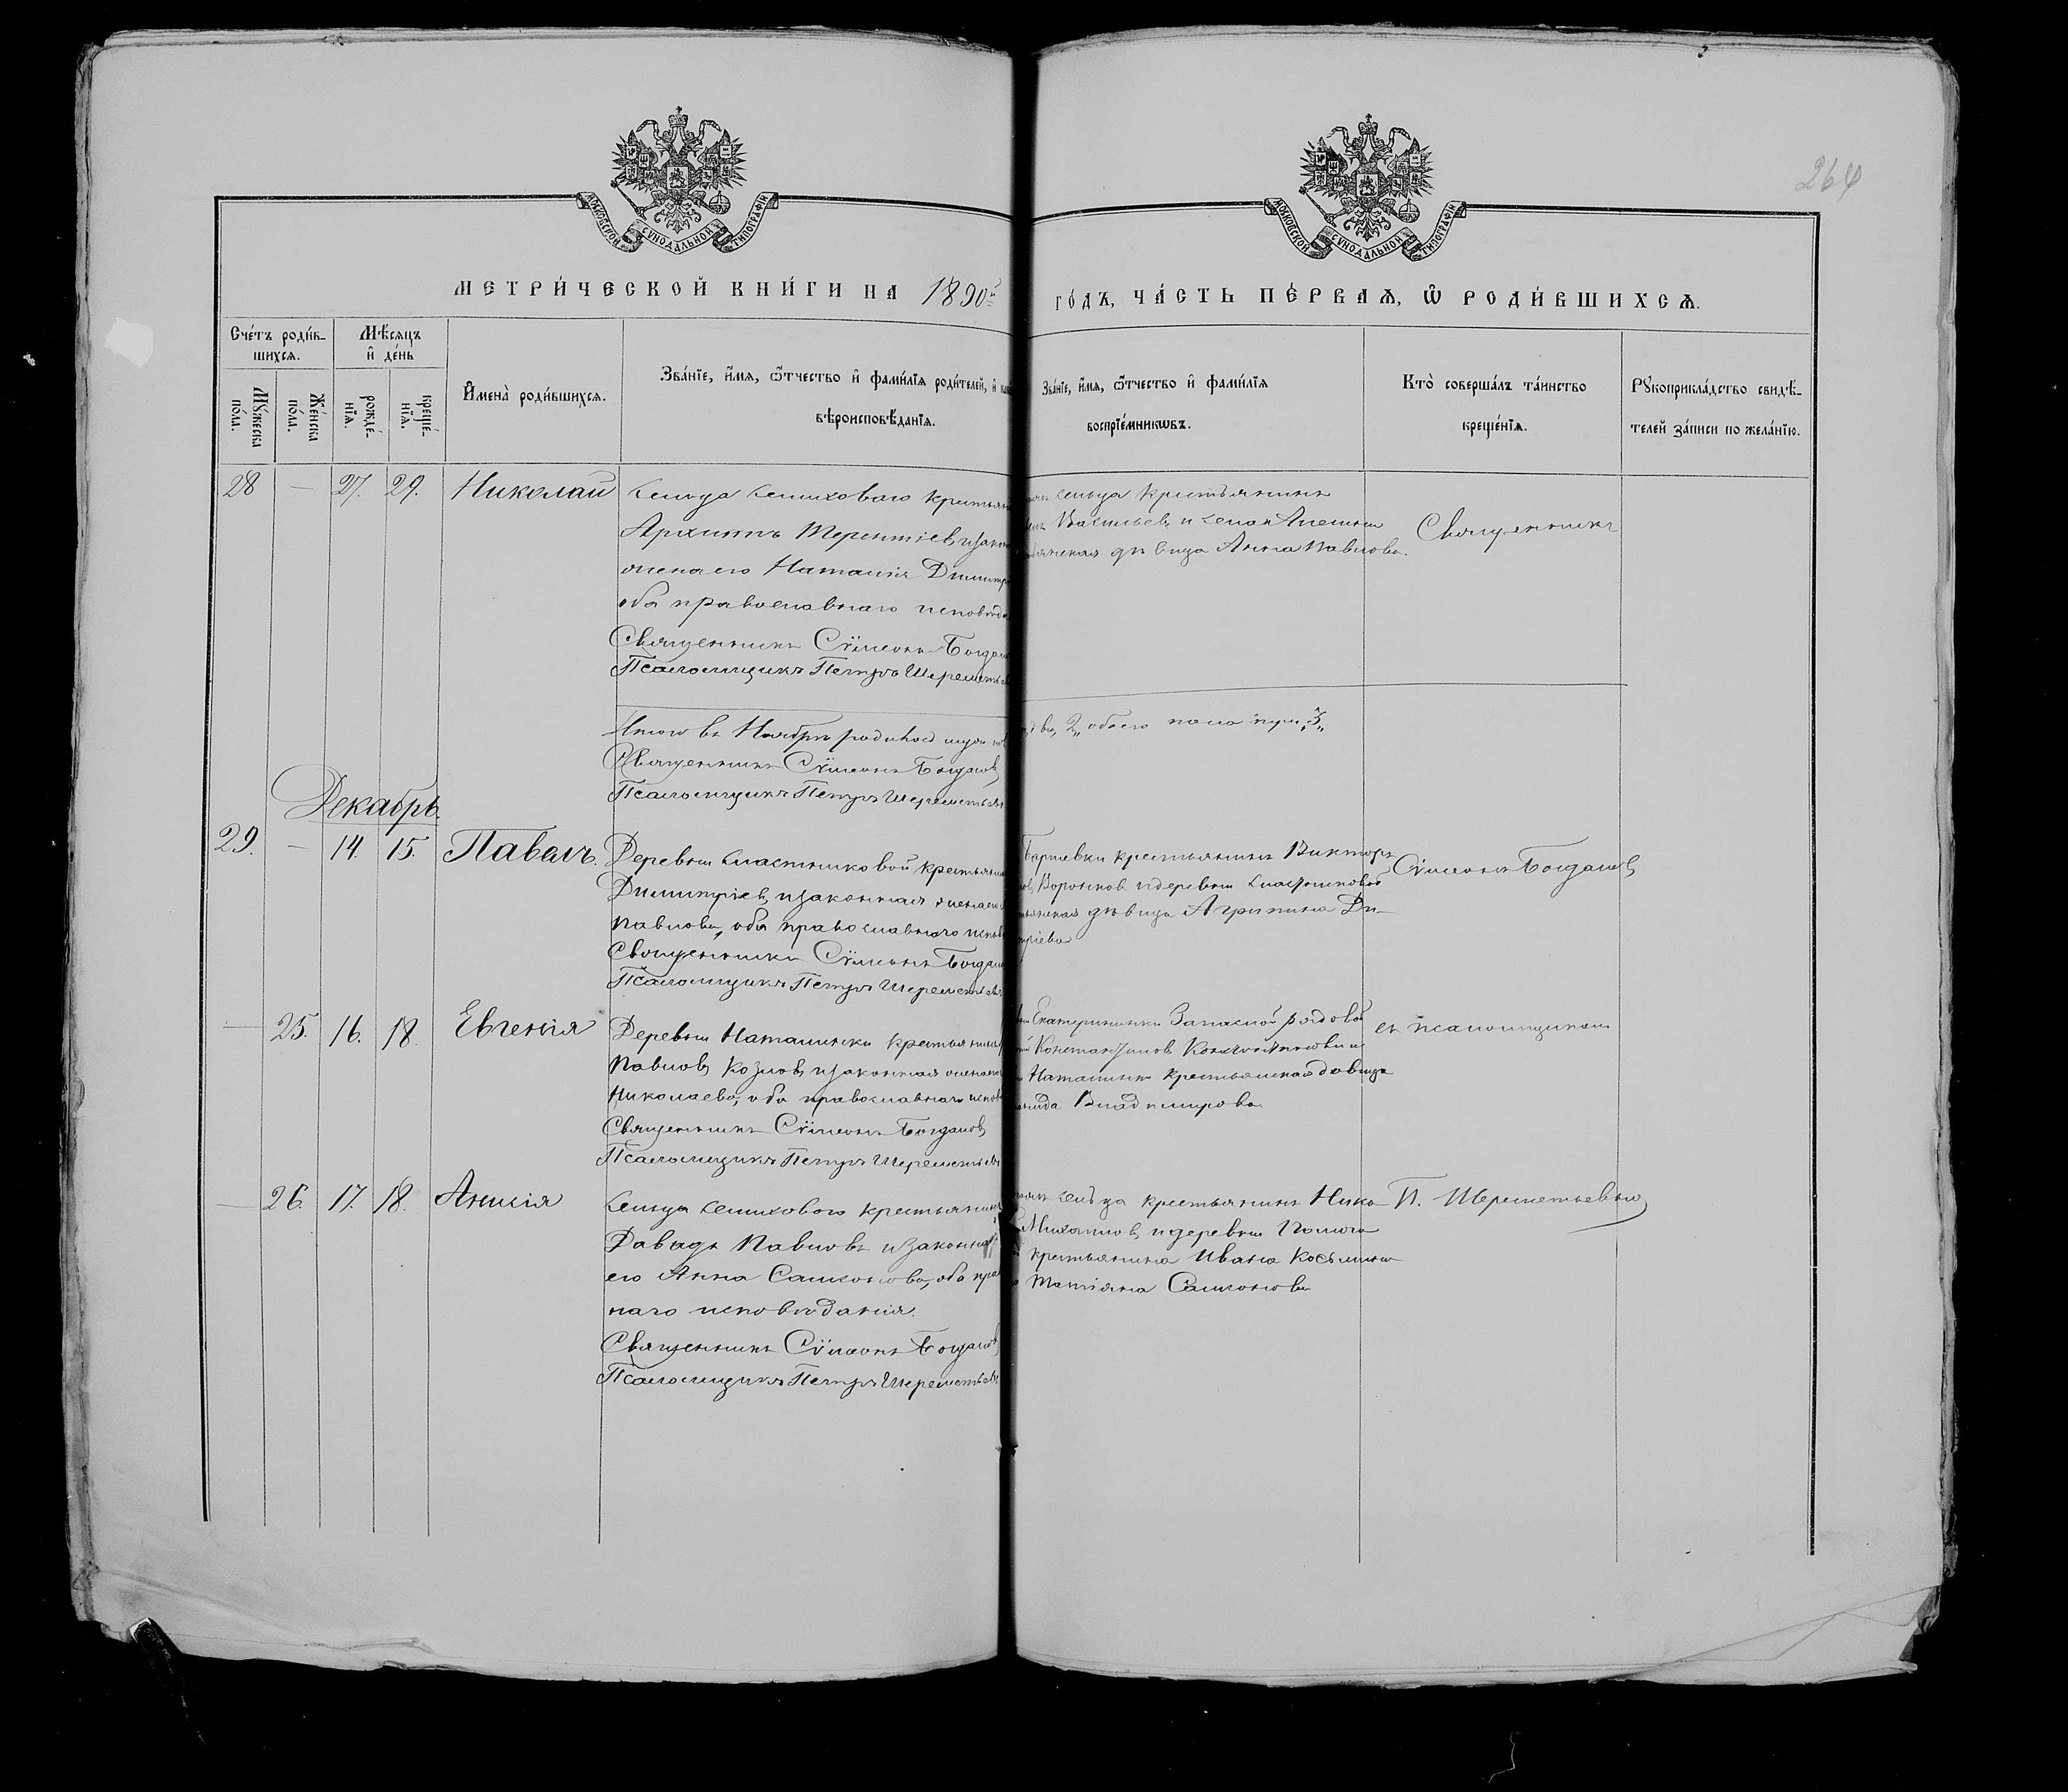 264
МОСКОВСКОЙ СѴНОДАЛЬНОЙ ТИПОГРАФІИ
МОСКОВСКОЙ СѴНОДАЛЬНОЙ ТИПОГРАФІИ
МЕТРИ́ЧЕСКОЙ КНИ́ГИ НА 1890 го́дъ, ЧА́СТЬ ПЕ́РВАѦ, Ѿ РОДИ́ВШИХСѦ.
Сче́тъ роди́в-
шихсѧ.
Мѣ́сѧцъ
и҆ де́нь
Му́жеска
по́ла.
Же́нска
по́ла.
рожде́-
нїѧ.
креще́-
нїѧ.
И҆мена̀ роди́вшихсѧ.
Зва́нїе, и҆́мѧ, ѻ҆́тчество и҆ фами́лїѧ роди́телей, и҆
вѣроисповѣ́данїѧ.
Зва́нїе, и҆́мѧ, ѻ҆́тчество и҆ фами́лїѧ
воспрїе́мникѡвъ.
Кто̀ соверша́лъ та́инство
креще́нїѧ.
Рꙋкоприкла́дство свидѣ́-
телей за́писи по жела́нїю.
28 — 27. 29. Николай
Сельца Семиховаго крестьян
Архиппъ Терентіев, и закон
жена его Наталия Димитр
оба православнаго исповѣд
Священникъ Сѵмеонъ Богдан
Псаломщикъ Петръ Шереметьев
сельца крестьянинъ
Васильев, и
дѣвица Анна Павлова.
Священникъ
Итого въ Ноябрѣ родилось
2, обоего пола три „3„
Священникъ Сѵмеонъ Богданов,
Псаломщикъ Петръ Шереметьев
Декабрь.
29. — 14. 15. Павелъ.
Деревни Сластниковой крестьян
Димитріев, и законная жена
Павлова, оба православнаго испов
Священникъ Сѵмеонъ Богдан
Псаломщикъ Петръ Шереметьев
крестьянинъ Викторъ
Воронков и деревни Сластниковой
дѣвица Агрипина Ди-
митріева
Сѵмеонъ Богданов,
— 25. 16. 18. Евгенія
Деревни Наталинки крестьянинъ
Павлов, Козлов, и законная жена
Николаева, оба православнаго испов
Священникъ Сѵмеонъ Богданов,
Псаломщикъ Петръ Шереметьев
Екатерининки Запасной рядовой
Константинов
Наталинки крестьянская дѣвица
Владимирова.
съ псаломщикомъ
— 26. 17. 18. Анисія
Сельца Семиховаго крестьянинъ
Давидъ Павловъ и законная
его Анна Самсонова, оба прав
наго исповѣданія.
Священникъ Сѵмеонъ Богданов,
Псаломщикъ Петръ Шереметьев
сельца крестьянинъ Нико
Михайлов, и деревни
крестьянина Ивана Косьмина
Татіяна Самсонова
П. Шереметьевым